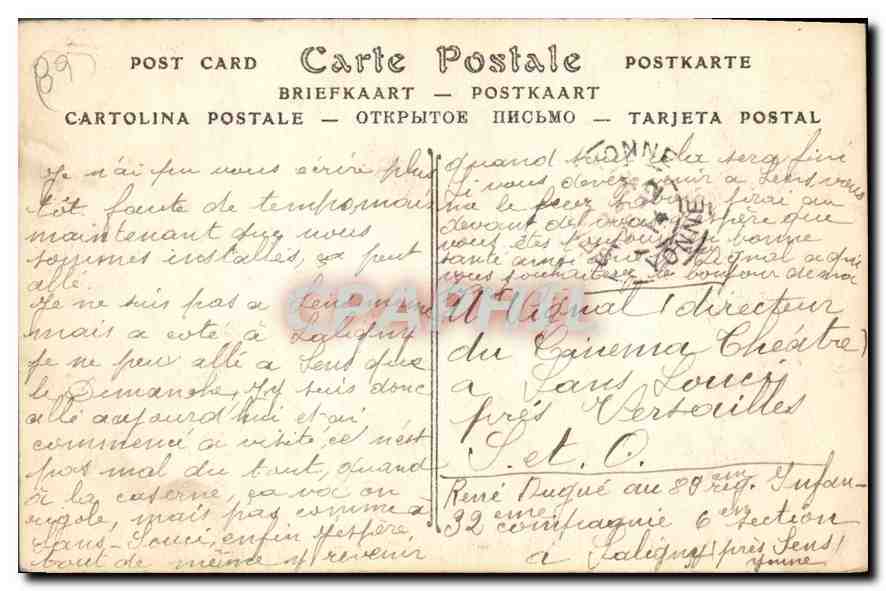 89
POST CARD Carte Postale POSTKARTE
BRIEFKAART — POSTKAART
CARTOLINA POSTALE — ОТКРЫТОЕ ПИСЬМО — TARJETA POSTAL
Je n'ai pu vous écrire plus
tôt faute de temps mais
maintenant que nous
sommes installés, ça peut
allé.
Je ne suis pas a Sens même
mais a coté à Saligny
je ne peu allé a Sens que
le Dimanche, j'y suis donc
allé aujourd'hui et ai
commencé a visité, ce n'est
pas mal du tout, quand
à la caserne, ça va on
rigole, mais pas comme a
Sans-Souci, enfin j'espère
tout de même y revenir
quand tout cela sera fini
Si vous devez venir a Sens vous
me le ferez savoir j'irai au
devant de vous j'espère que
vous êtes toujours en bonne
santé ainsi que Lignal a qui
vous souhaiterez le bonjour de moi
YONNE
YONNE
Mr Lignal (directeur
du Cinema Théâtre)
a Sans Souci
prés Versailles
S. et. O.
René Duqué au 89 em reg. Infan-
32 eme compagnie 6 em section
à Saligny (près Sens)
Yonne
CPAPHIL